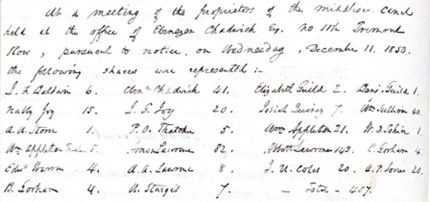 At a meeting of the proprietors of the middlesex Canal
held at the office of Ebenezer Chadwick Esq. no 11th Tremont
Row, pursuant to notice, on Wednesday, December 11. 1850.
the following shares were represented :-
J. F. Baldwin 6. Ebenr Chadwick 41. Elizabeth Guild 2. Benj. Guild 1.
Nabby Joy 15. J. G. Joy 20. Josiah Quincy 7. Wm Sullivan 40.
A. A. Stone 1. P. O. Thatcher 5. Wm Appleton 21. W. D. 1.
Wm Appleton 5. Amos Lawrence 82. Abbott Lawrence 143. C. Gorham 4.
Edwd Warren 4. A. A. Lawrence 8. J. U. Coles 20. 20.
B. Gorham 4. W. Sturgis 7. — Total - 457.